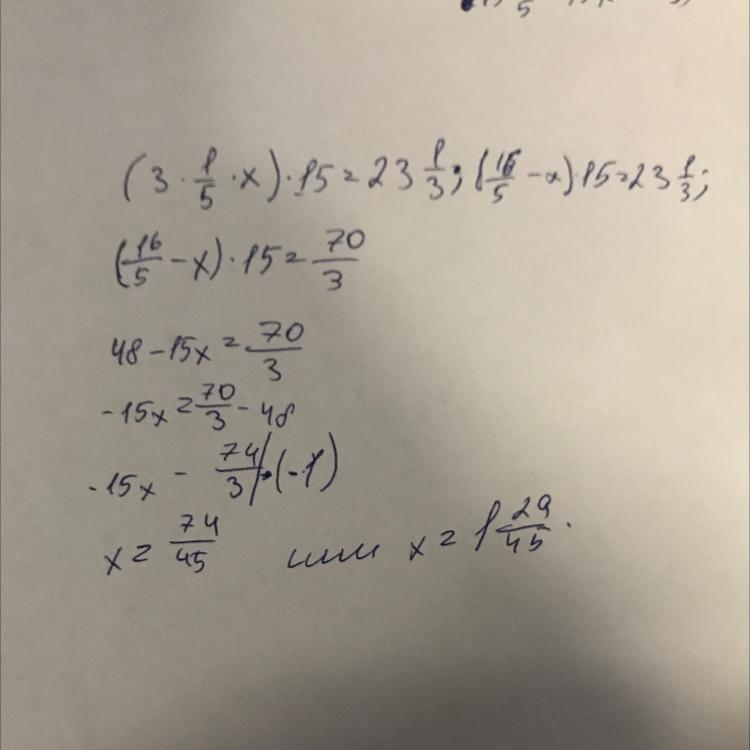 (3 · 1/5 · x) · 15 = 23 1/3; (16/5 - x) · 15 = 23 1/3;
(16/5 - x) · 15 = 70/3
48 - 15x = 70/3
-15x = 70/3 - 48
-15x - 74/3 | · (-1)
x = 74/45 или x = 1 29/45.